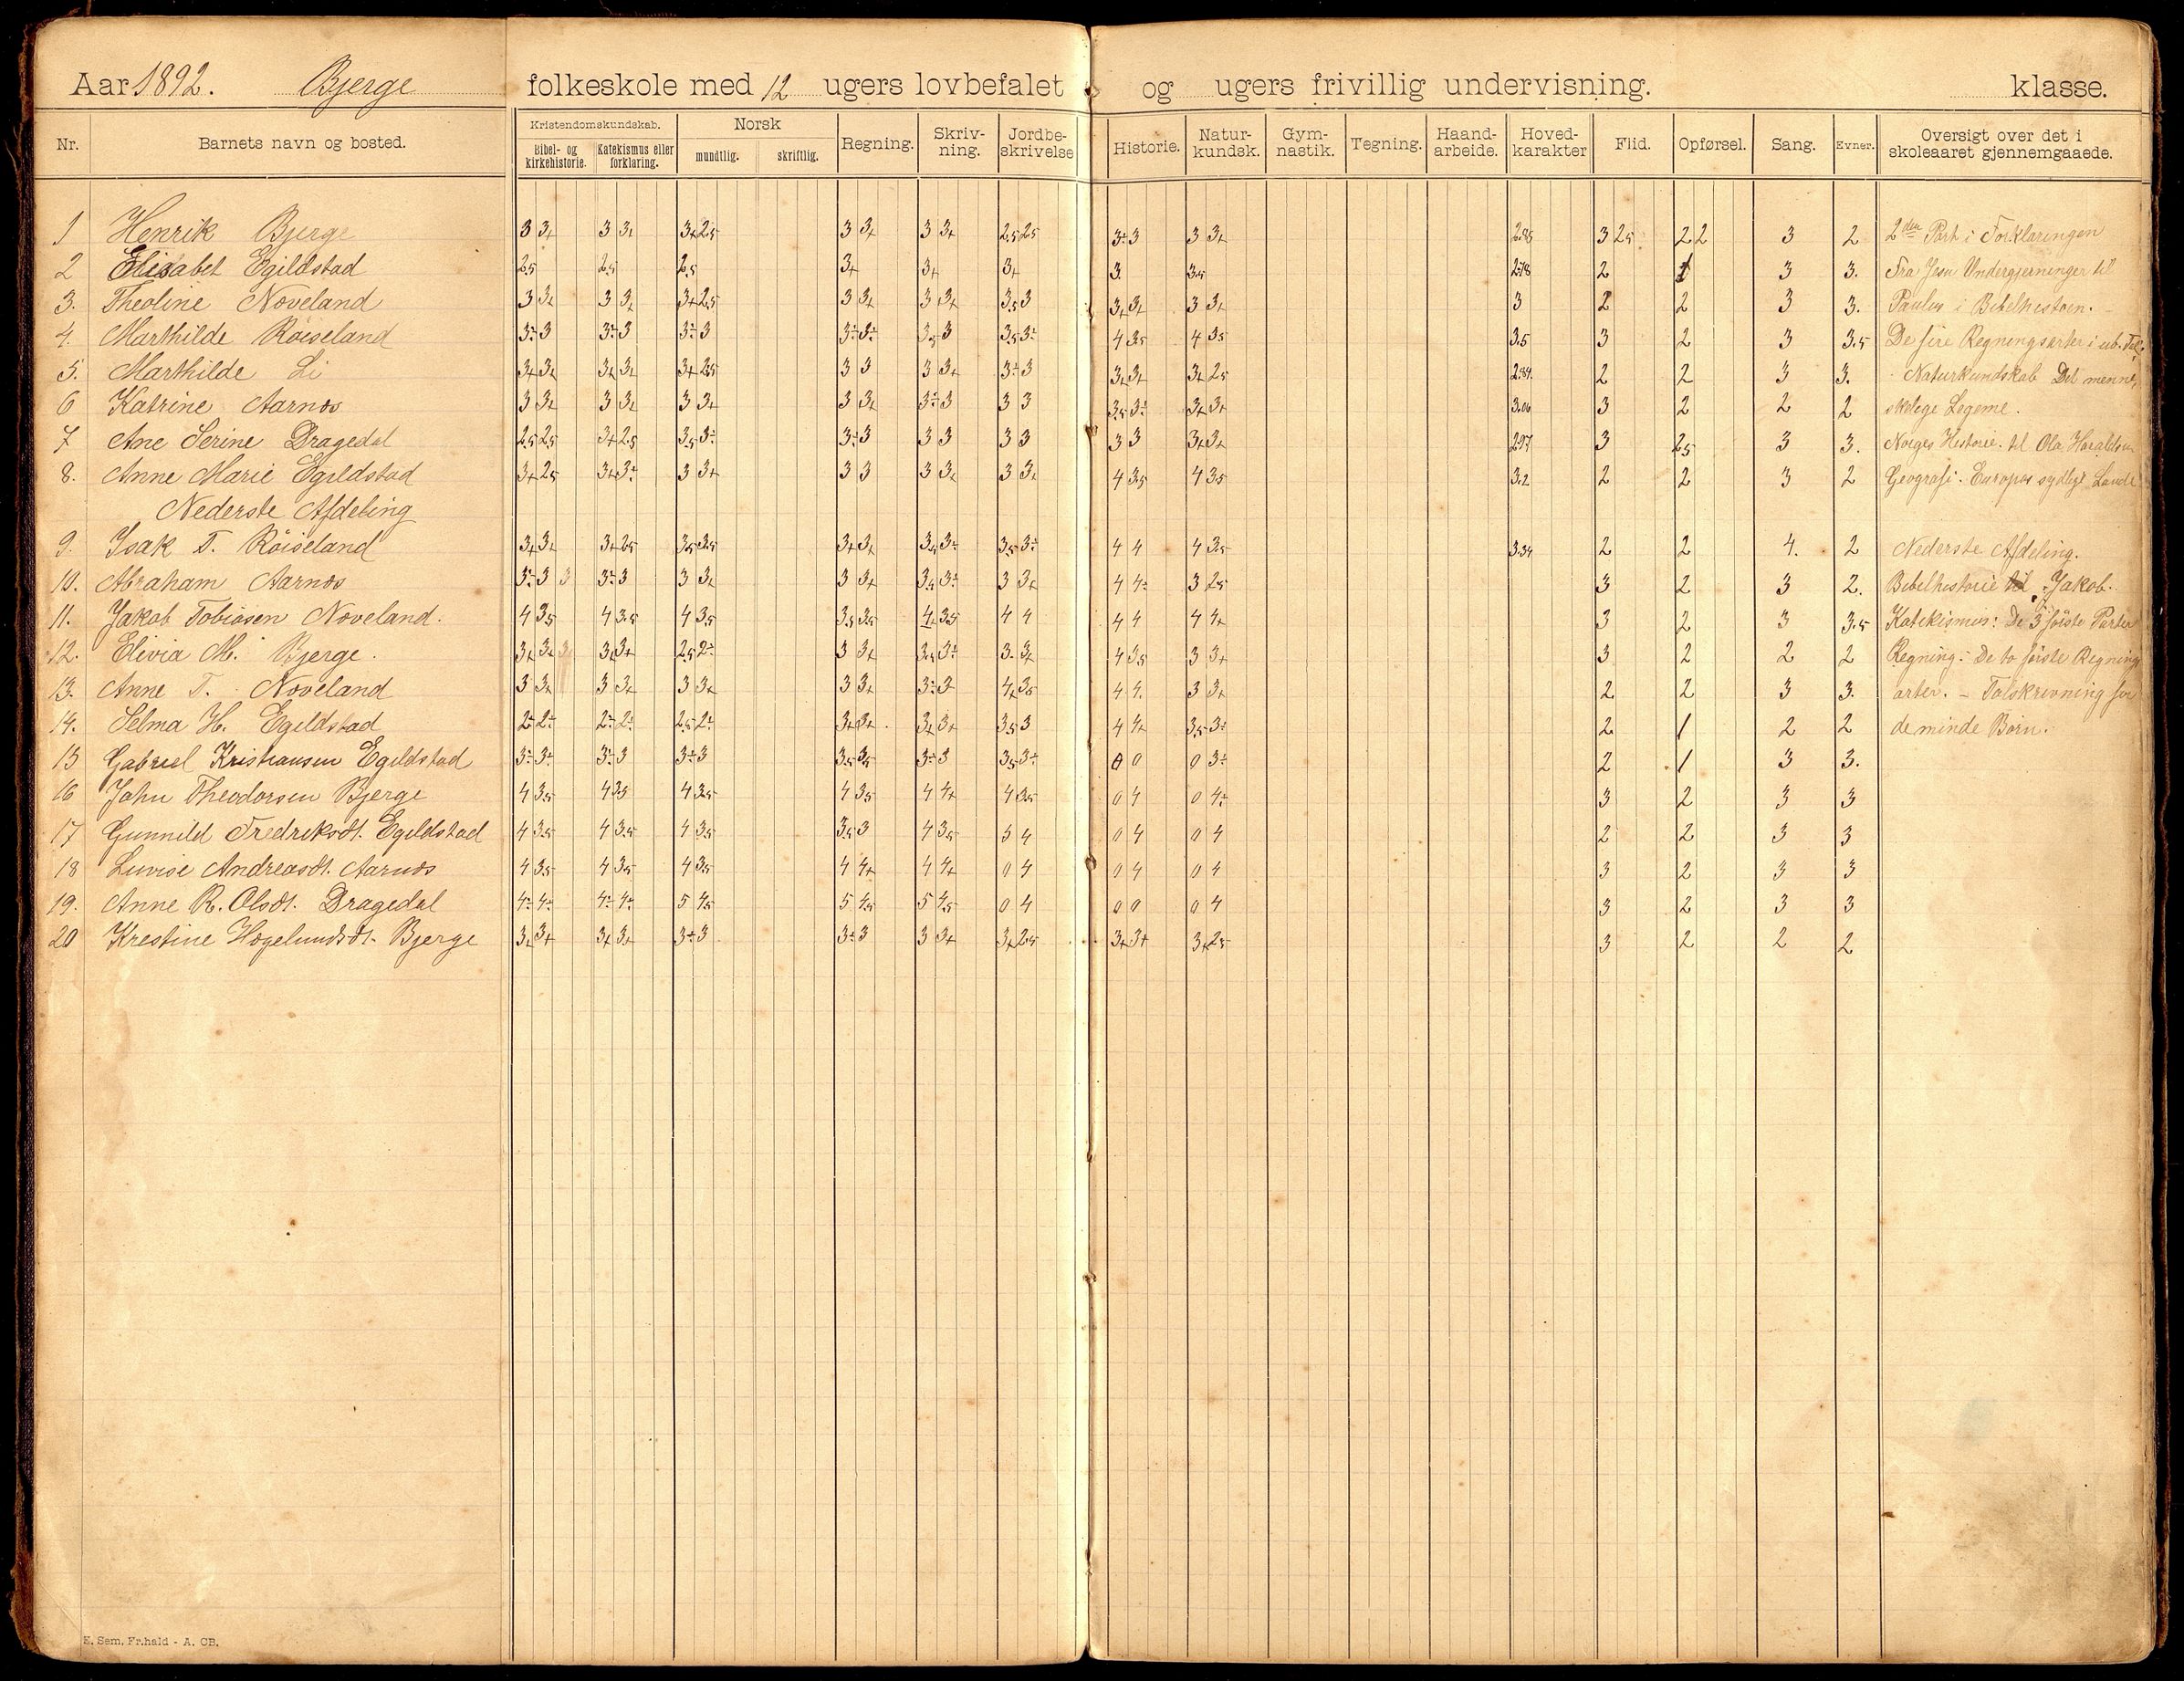 Aar 1892. Bjerge folkeskole med 12 ugers lovbefalet og ugers frivillig undervisning. klasse.
Nr. Barnets navn og bosted. Kristendomskundskab. Bibel- og kirkehistorie. Katekismus eller forklaring. Norsk mundtlig. skriftlig. Regning. Skriv-ning. Jordbe-skrivelse Historie. Natur-kundsk. Gym-nastik. Tegning. Haand-arbeide. Hoved-karakter Flid. Opførsel. Sang. Evner. Oversigt over det i skoleaaret gjennemgaaede.
1 Henrik Bjerge 3 3+ 3 3+ 3+ 2.5 3 3+ 3 3+ 2.5 2.5 3÷ 3 3 3+ 2.85 3 2.5 2 2 3 2 2den Part i Forklaringen
2 Elisabet Egildstad 2.5 2.5 2.5 3+ 3+ 3+ 3 3.5 2.78 2 1 3 3. Fra Jesu Undergjerninger til
3. Theoline Noveland 3 3+ 3 3+ 3+ 2.5 3 3+ 3 3+ 3.5 3 3+ 3+ 3 3+ 3 2 2 3 3. Paulus i Bibelhistorien.
4. Marthilde Röiseland 3÷ 3 3÷ 3 3÷ 3 3÷ 3÷ 3.5 3 3.5 3÷ 4 3.5 4 3.5 3.5 3 2 3 3.5 De fire Regningsarter i ub. Tal.
5. Marthilde Li 3+ 3+ 3+ 3+ 3+ 2.5 3 3 3 3+ 3÷ 3 3+ 3+ 3+ 2.5 2.84. 2 2 3 3. Naturkundskab Det menne-
6 Katrine Aarnos 3 3+ 3 3+ 3 3+ 3 3+ 3÷ 3 3 3 3.5 3÷ 3+ 3+ 3.06 3 2 2 2 skelige Legeme.
7 Ane Serine Dragedal 2.5 2.5 3+ 2.5 3.5 3÷ 3÷ 3 3 3 3 3 3 3 3+ 3+ 2.97 3 2.5 3 3. Norges Historie til Ola Haraldsøn
8. Anne Marie Egildstad 3+ 2.5 3+ 3÷ 3 3+ 3 3 3 3+ 3 3+ 4 3.5 4 3.5 3.2 2 2 3 2 Geografi. Europas sydlige Lande
Nederste Afdeling
9. Isak T. Röiseland 3+ 3+ 3+ 2.5 3.5 3.5 3+ 3+ 3.5 3÷ 3.5 3÷ 4 4 4 3.5 3.34 2 2 4. 2 Nederste Afdeling.
10. Abraham Aarnos 3÷ 3 3 3÷ 3 3 3+ 3 3+ 3.5 3÷ 3 3+ 4 4÷ 3 2.5 3 2 3 2. Bibelhistorie til Jakob.
11. Jakob Tobiasen Noveland. 4 3.5 4 3.5 4 3.5 3.5 3.5 4+ 3.5 4 4 4 4 4 4+ 3 2 3 3.5 Katekismus: De 3 første Parter
12. Elivia M. Bjerge. 3+ 3+ 3 3+ 3+ 2.5 2÷ 3 3+ 3.5 3÷ 3. 3+ 4 3.5 3 3+ 3 2 2 2 Regning: De to første Regning
13. Anne T. Noveland 3 3+ 3 3+ 3 3+ 3 3+ 3÷ 3 4+ 3.5 4 4. 3 3+ 2 2 3 3. arter. - Talskrivning for
14. Selma H. Egildstad 2÷ 2÷ 2÷ 2÷ 2.5 2÷ 3+ 3+ 3+ 3+ 3.5 3 4 4+ 3.5 3÷ 2 1 2 2 de mindre Børn.
15 Gabriel Kristiansen Egildstad 3÷ 3÷ 3÷ 3 3÷ 3 3.5 3.5 3÷ 3 3.5 3÷ 0 0 0 3÷ 2 1 3 3.
16 John Theodorsen Bjerge 4 3.5 4 3.5 4 3.5 4 3.5 4 4+ 4 3.5 0 4 0 4÷ 3 2 3 3
17 Gunnild Fredriksdt. Egildstad 4 3.5 4 3.5 4 3.5 3.5 3 4 3.5 5 4 0 4 0 4 2 2 3 3
18 Luvise Andreasdt. Aarnos 4 3.5 4 3.5 4 3.5 4 4+ 4 4+ 0 4 0 4 0 4 3 2 3 3
19. Anne R. Olsdt. Dragedal 4÷ 4÷ 4÷ 4÷ 5 4.5 5 4.5 5 4.5 0 4 0 0 0 4 3 2 3 3
20 Krestine Hogelundsdt. Bjerge 3+ 3+ 3+ 3+ 3÷ 3 3÷ 3 3 3+ 3+ 2.5 3+ 3+ 3+ 2.5 3 2 2 2
E. Sem, Fr.hald - A. CB.